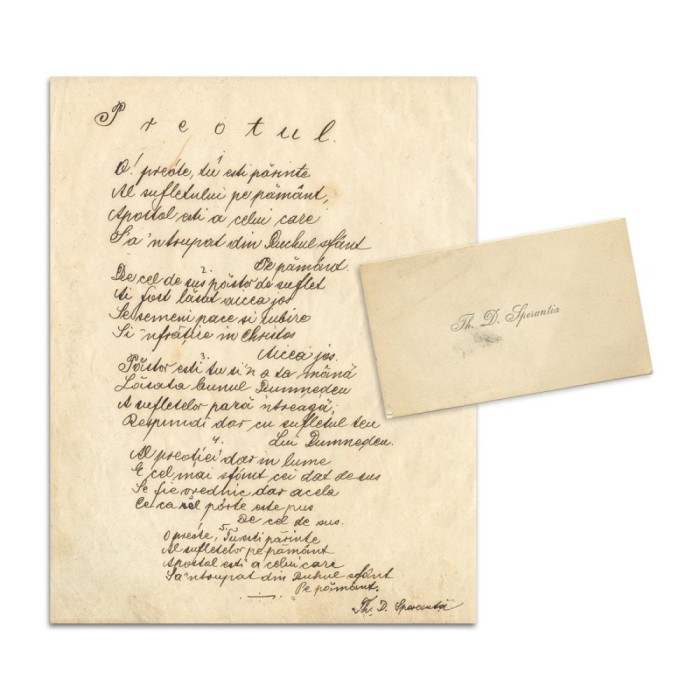 Preotul.
O! preóte, tu esti părinte
Al sufletului pe pământ,
Apostol esti a celui care
S'a 'ntrupat din Duhul sfânt
Pe pămând.
2.
De cel de sus păstor de suflet
Ai fost lăsat aicca jos
Se semeni pace si iubire
Si 'nfrățire in Christos
Aicca jos.
3.
Păstor esti tu si 'n a ta mână
Lăsata bunul Dumnedeu
A sufletelor pară 'ntreagă,
Respundi dar cu sufletul teu
Lui Dumnedeu.
4.
Al preoției dar in lume
E cel mai sfânt cei dat de sus
Se fie vrednic dar acela
Ce ca sĕl pórte este pus
De cel de sus.
5.
O preóte, Tu esti părinte
Al sufletelor pe pământ
Apostol esti a celui care
S'a 'ntrupat din Duhul sfânt
Pe pământ.
Th. D. Sperantia
Th. D. Sperantia